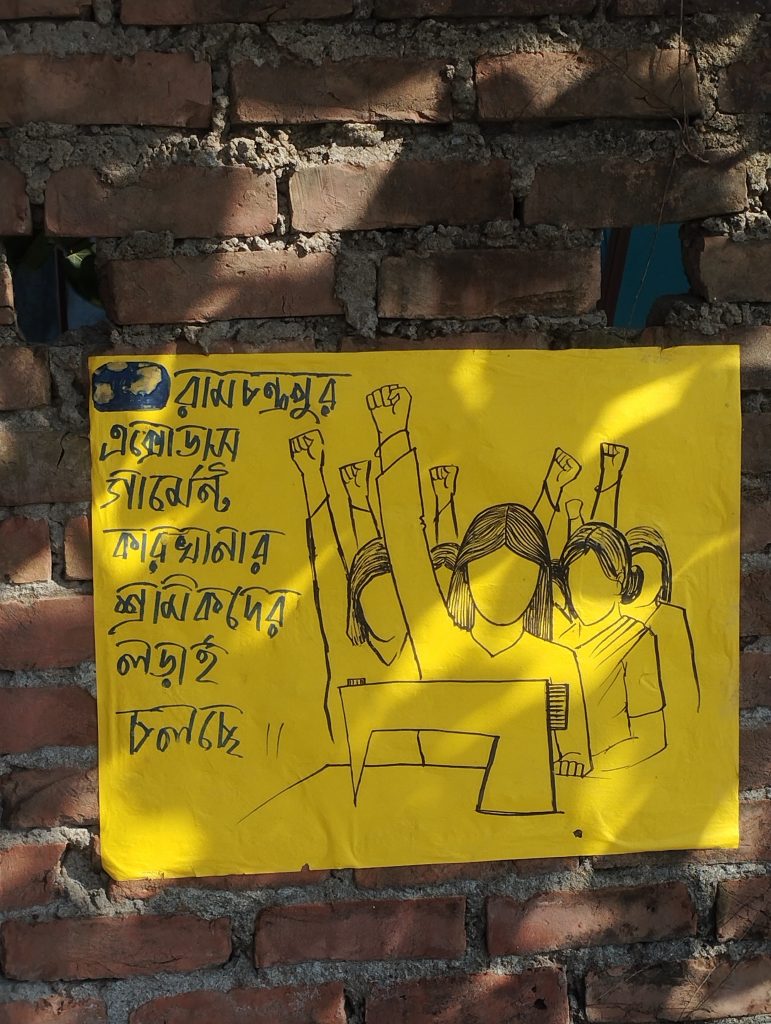 রামচন্দ্রপুর
এক্সোডাস
গার্মেন্ট
কারখানার
শ্রমিকদের
লড়াই
চলছে॥